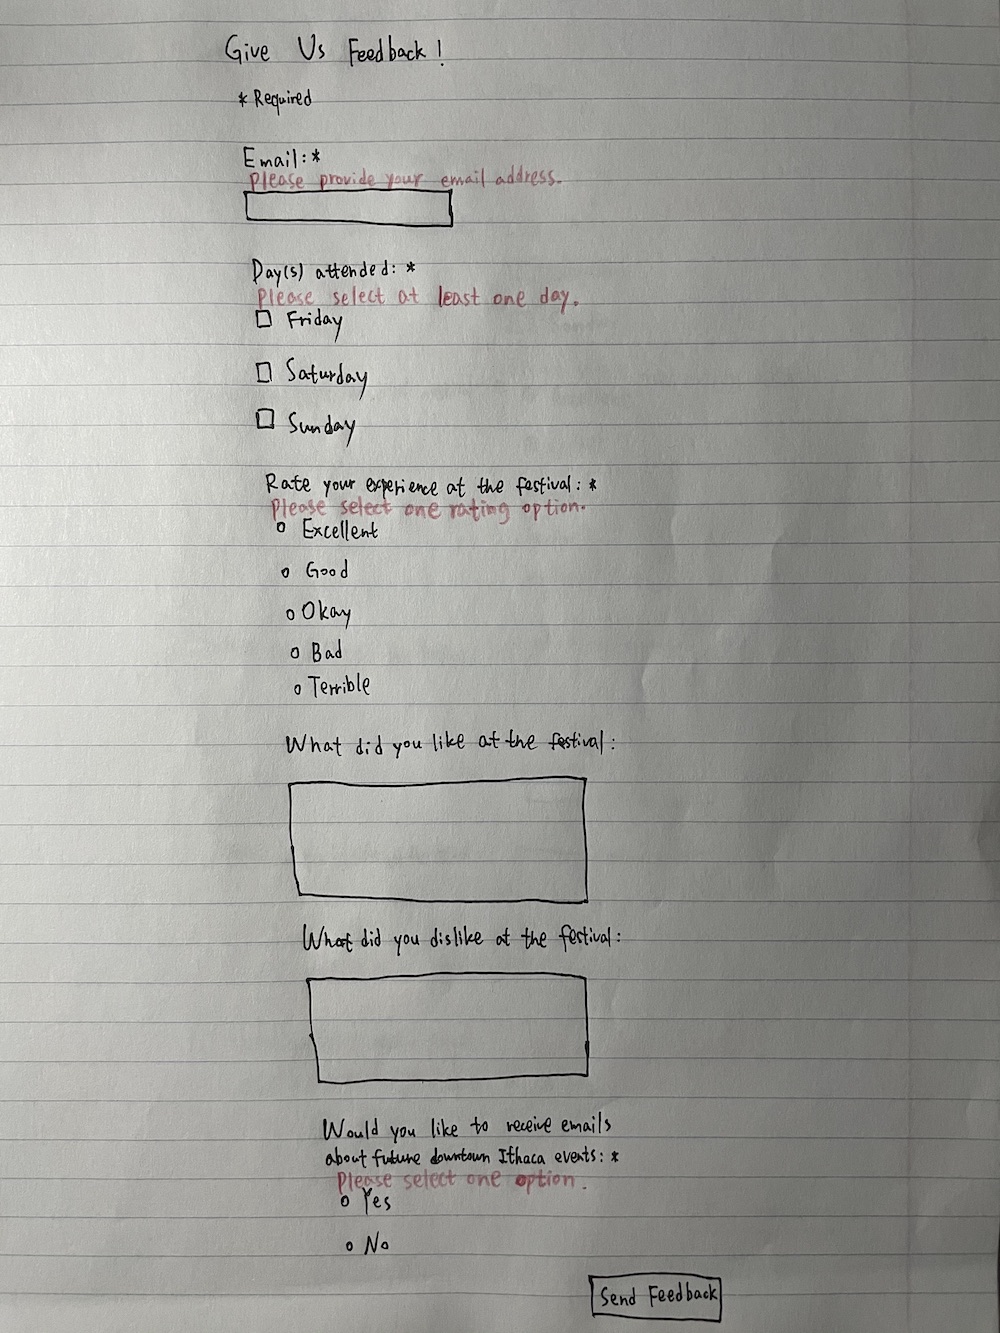 Give Us Feedback!
* Required
Email:*
Please provide your email address.
Day(s) attended: *
Please select at least one day.
Friday
Saturday
Sunday
Rate your experience at the festival: *
Please select one rating option.
Excellent
Good
Okay
Bad
Terrible
What did you like at the festival:
What did you dislike at the festival:
Would you like to receive emails
about future downtown Ithaca events: *
Please select one option.
Yes
No
Send Feedback